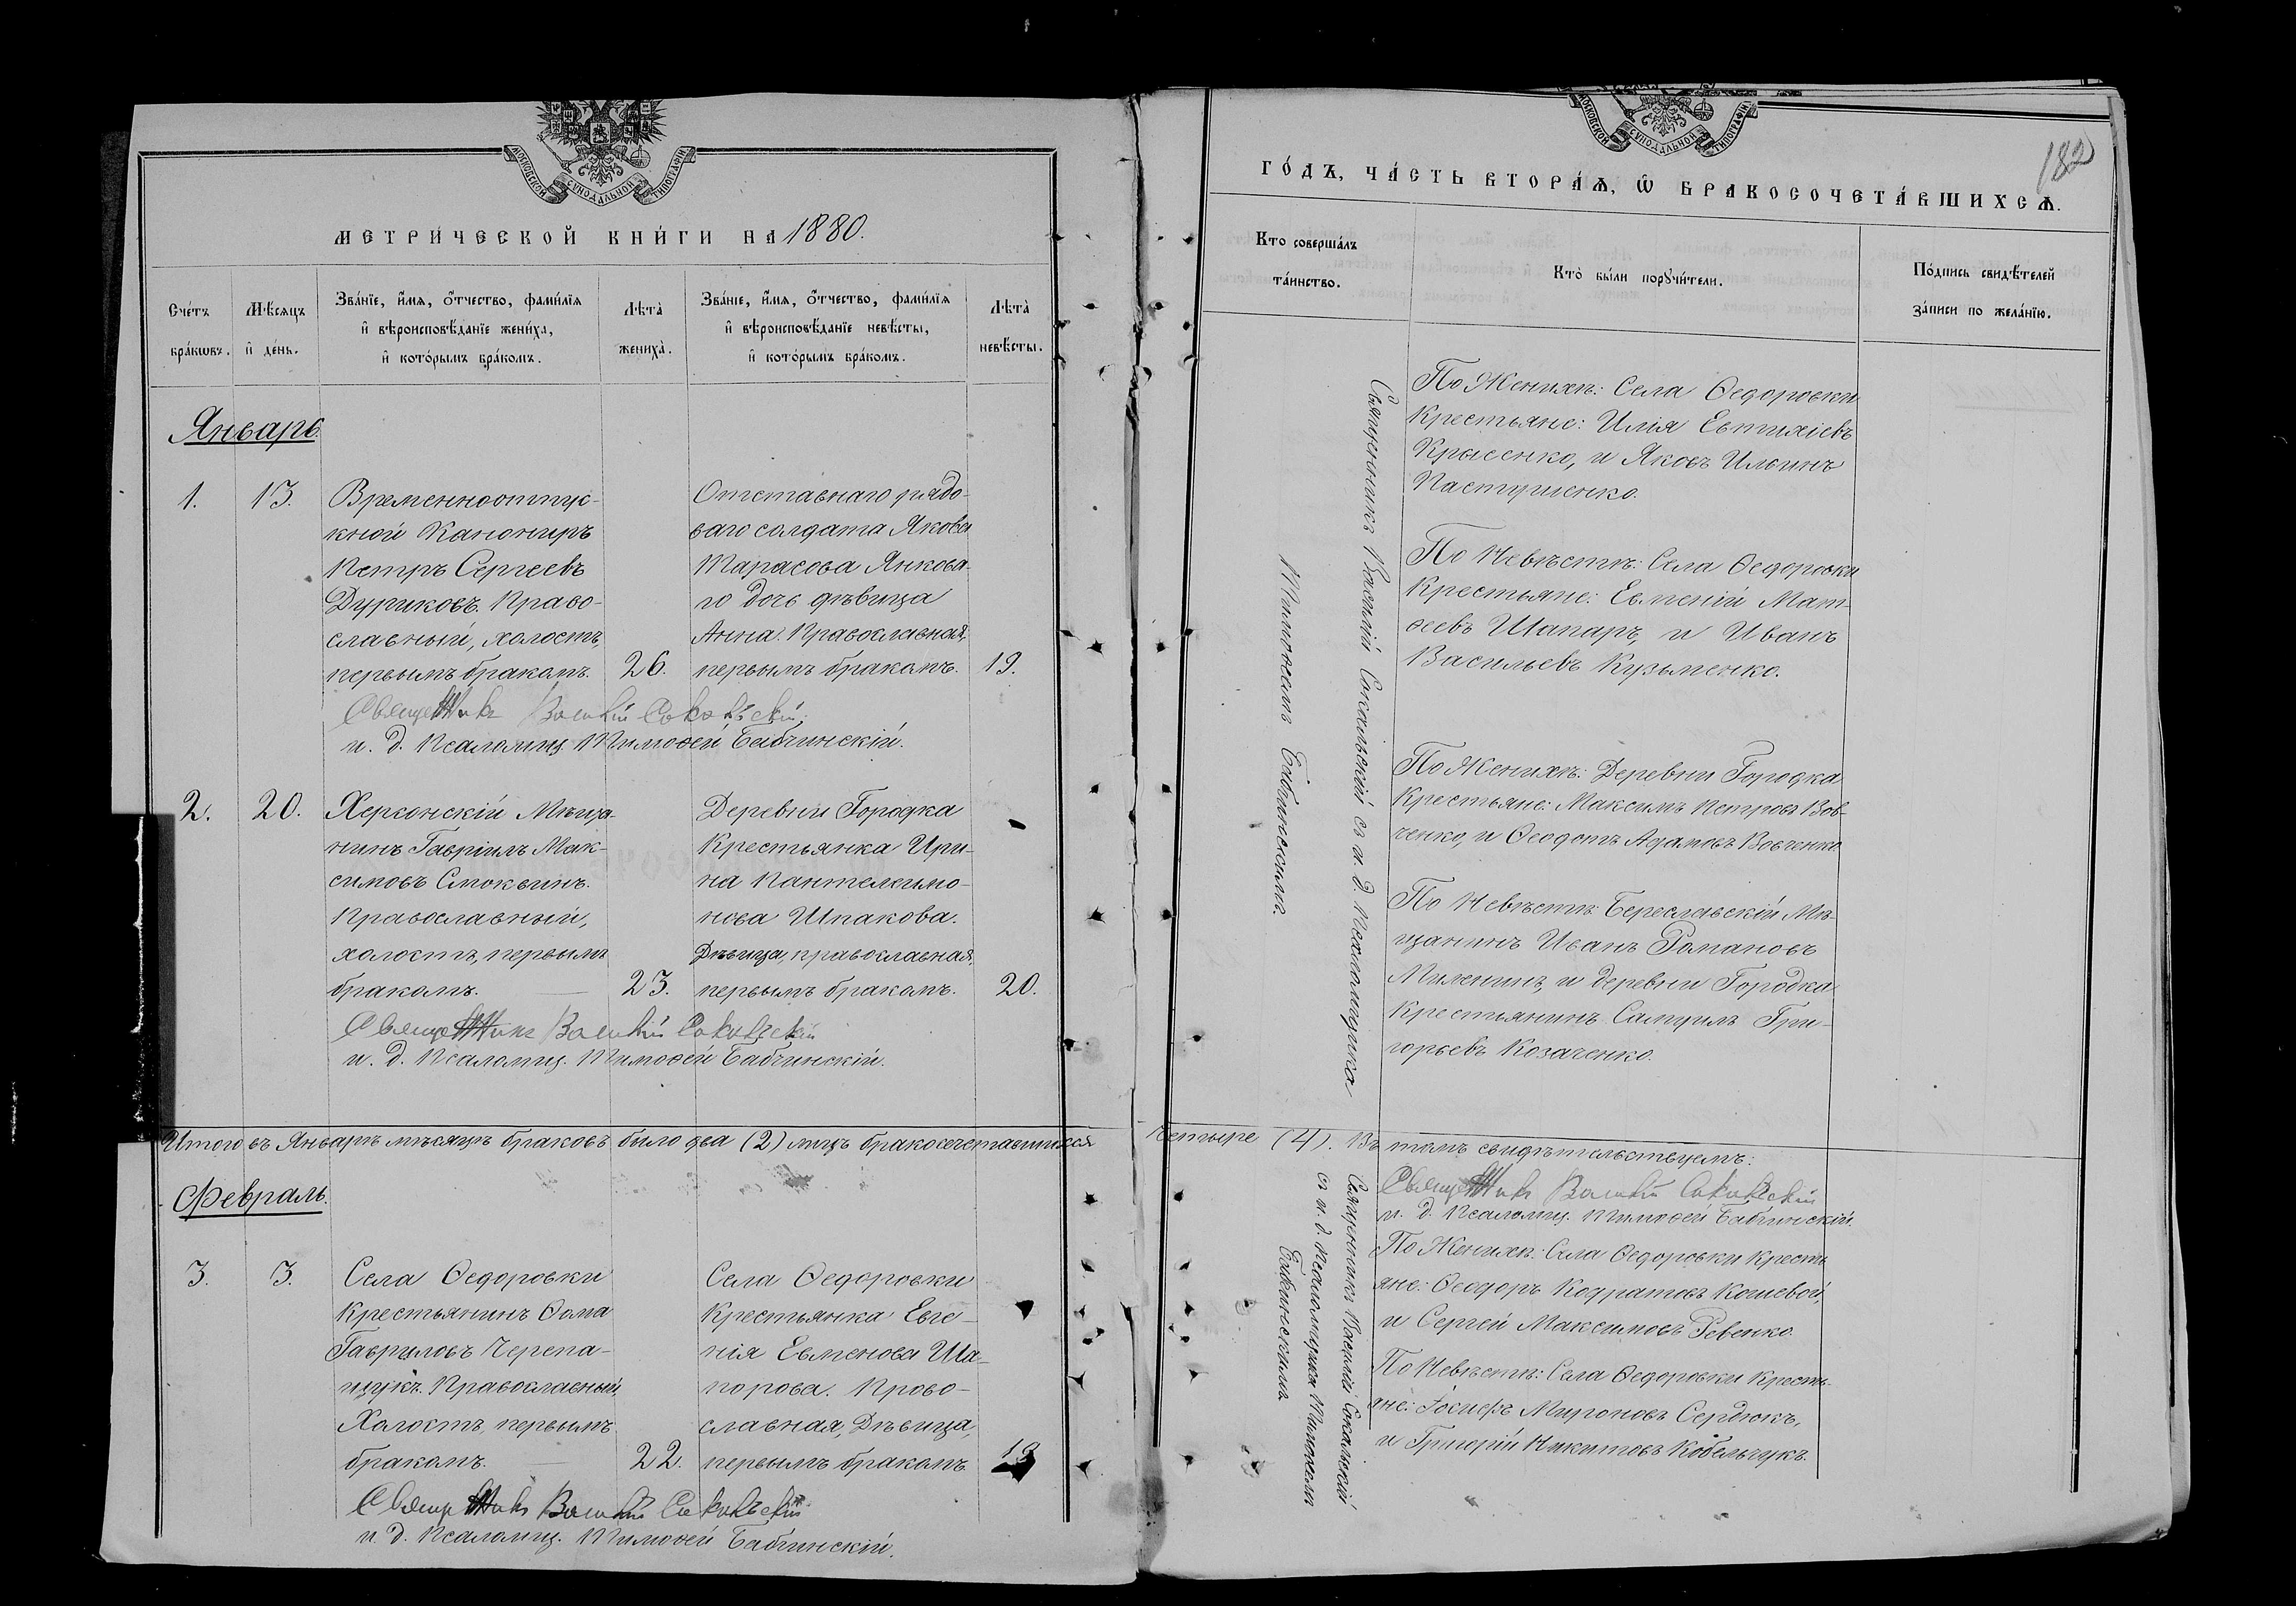 МОСКОВСКОЙ СѴНОДАЛЬНОЙ ТИПОГРАФІИ
МЕТРИ́ЧЕСКОЙ КНИ́ГИ НА 1880.
Сче́тъ бра́кѡвъ.
Мѣ́сяцъ и҆ де́нь.
Зва́нїе, и҆́мѧ, о҆́тчество, фами́лїѧ
и҆ вѣроисповѣ́данїе жениха̀,
и҆ кото́рымъ бра́комъ.
Лѣта̀ жениха̀.
Зва́нїе, и҆́мѧ, о҆́тчество, фами́лїѧ
и҆ вѣроисповѣ́данїе невѣ́сты,
и҆ кото́рымъ бра́комъ.
Лѣта̀ невѣ́сты.
Январь.
1. 13.
Временноотпус-
кной Канониръ
Петръ Сергѣевъ
Дуриковъ. Право-
славный, холостъ,
первымъ бракомъ. 26.
Отставнаго рядо-
ваго солдата Якова
Тарасова Янкова-
го дочь дѣвица
Анна. Православная,
первымъ бракомъ. 19.
Священникъ Василій Сокальскій.
и. д. Псаломщ. Тимоѳей Бабчинскій.
2. 20.
Херсонскій Мѣща-
нинъ Гавріилъ Мак-
симовъ Смоквинъ.
Православный,
холостъ, первымъ
бракомъ. 23.
Деревни Городка
Крестьянка Ири-
на Пантелеимо-
нова Шпакова.
Дѣвица, православная,
первымъ бракомъ. 20.
Священникъ Василій Сокальскій
и. д. Псаломщ. Тимоѳей Бабчинскій.
Итого въ Январѣ мѣсяцѣ браковъ било два (2) лицъ бракосочетавшихся
Февраль.
3. 3.
Села Ѳедоровки
Крестьянинъ Ѳома
Гавриловъ Черепа-
щукъ. Православный
Холостъ, первымъ
бракомъ. 22.
Села Ѳедоровки
Крестьянка Евге-
нія Евменова Ша-
порова. Право-
славная, Дѣвица,
первымъ бракомъ 19
Священникъ Василій Сокальскій
и. д. Псаломщ. Тимоѳей Бабчинскій.
МОСКОВСКОЙ СѴНОДАЛЬНОЙ ТИПОГРАФІИ
182
ГО́ДЪ, ЧА́СТЬ ВТОРА́Ѧ, Ѡ҆ БРАКОСОЧЕТА́ВШИХСѦ.
Кто соверша́лъ
та́инство.
Кто̀ бы́ли порꙋчи́тели.
По́дпись свидѣ́телей
за́писи по жела́нїю.
Священникъ Василій Сокальскій съ и. д. Псаломщика
Тимоѳеемъ Бабчинскимъ.
По Женихѣ: Села Ѳедоровки
Крестьяне: Илія Евтихіевъ
Крысенко, и Яковъ Ильинъ
Пастушенко.
По Невѣстѣ: Села Ѳедоровки
Крестьяне: Евменій Мат-
ѳеевъ Шапаръ, и Иванъ
Васильевъ Кузьменко.
По Женихѣ: Деревни Городка
Крестьяне: Максимъ Петровъ Вов-
ченко, и Ѳеодотъ Адамовъ Вовченко
По Невѣстѣ: Береславскій Мѣ-
щанинъ Иванъ Романовъ
Миленинъ, и деревни Городка
Крестьянинъ Самуилъ Гри-
горьевъ Козаченко.
четыре (4). Въ томъ свидѣтельствуемъ:
Священникъ Василій Сокальскій
и. д. Псаломщ. Тимоѳей Бабчинскій.
Священникъ Василій Сокальскій
съ и. д. Псаломщика Тимоѳеемъ
Бабчинскимъ
По Женихѣ: Села Ѳедоровки Кресть-
яне: Ѳеодоръ Кодратовъ Кошевой,
и Сергей Максимовъ Ревенко.
По Невѣстѣ: Села Ѳедоровки Кресть-
яне: Іосифъ Мироновъ Сердюкъ,
и Григорій Никитовъ Кобельчукъ.